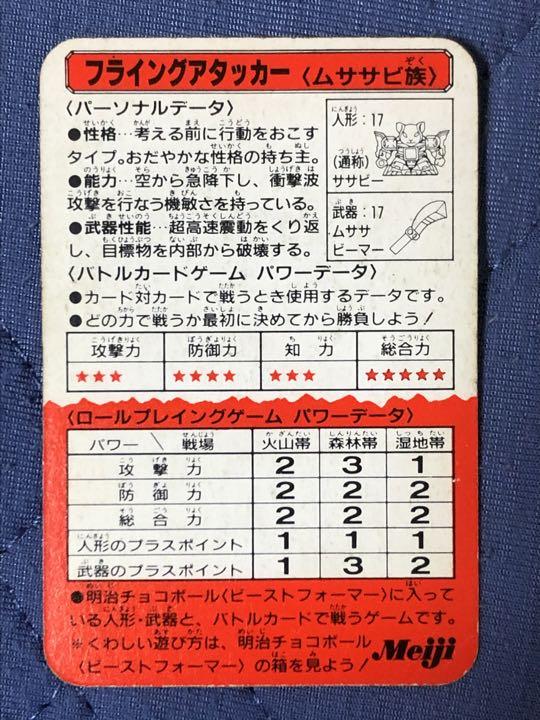 フライングアタッカー〈ムササビ族〉
〈パーソナルデータ〉
●性格…考える前に行動をおこす
タイプ。おだやかな性格の持ち主。
●能力…空から急降下し、衝撃波
攻撃を行なう機敏さを持っている。
●武器性能…超高速震動をくり返
し、目標物を内部から破壊する。
人形：17
(通称)
ササビー
武器：17
ムササ
ビーマー
〈バトルカードゲーム パワーデータ〉
●カード対カードで戦うとき使用するデータです。
●どの力で戦うか最初に決めてから勝負しよう！
攻撃力 防御力 知力 総合力
★★★ ★★★★ ★★★ ★★★★★
〈ロールプレイングゲーム パワーデータ〉
パワー＼戦場 火山帯 森林帯 湿地帯
攻撃力 2 3 1
防御力 2 2 2
総合力 2 2 2
人形のプラスポイント 1 1 1
武器のプラスポイント 1 3 2
●明治チョコボール〈ビーストフォーマー〉に入って
いる人形・武器と、バトルカードで戦うゲームです。
※くわしい遊び方は、明治チョコボール
〈ビーストフォーマー〉の箱を見よう！
Meiji